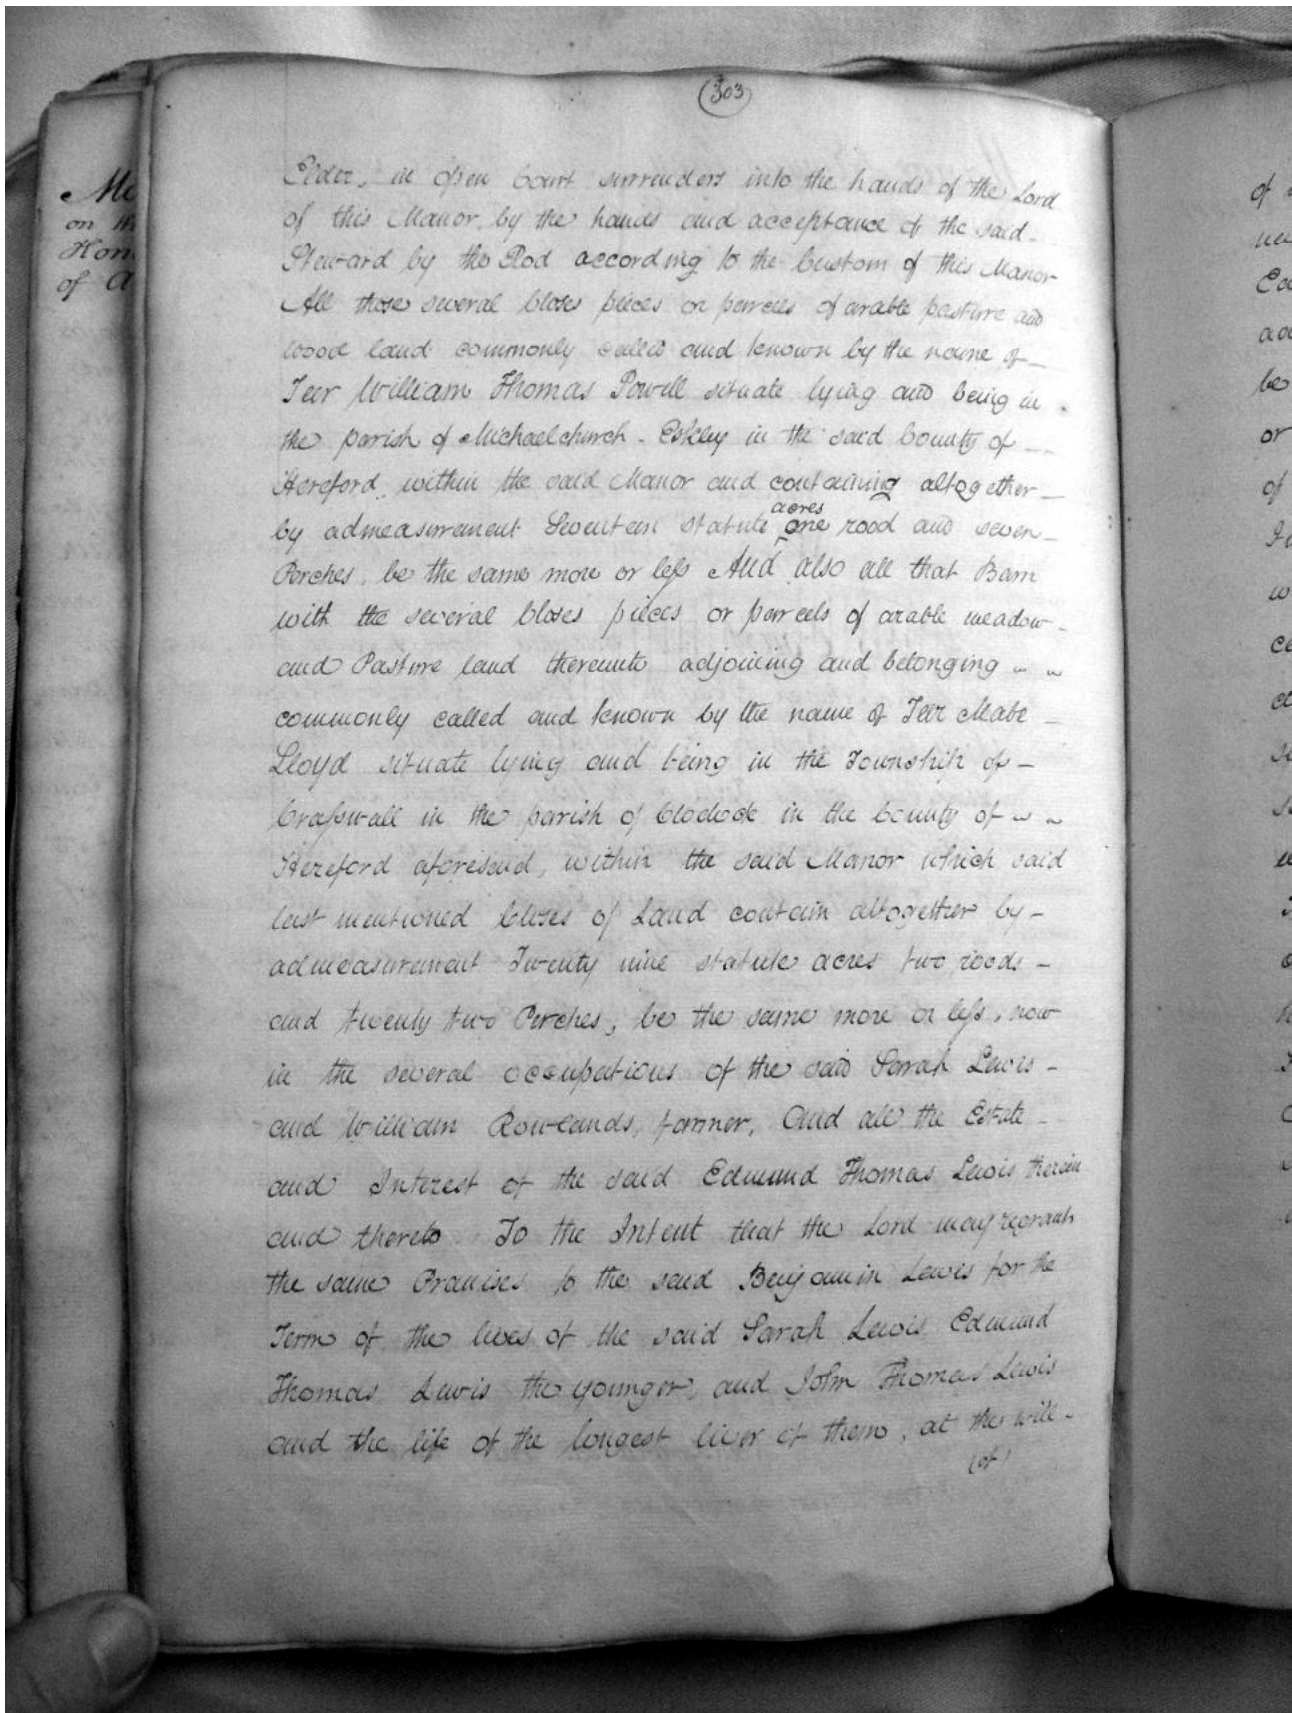 303
Elder, in open Court surrenders into the hands of the Lord
of this Manor, by the hands and acceptance of the said
Steward by the Rod according to the Custom of this Manor
All those several Closes pieces or parcels of arable pasture and
wood land commonly called and known by the name of
Teer William Thomas Powell situate lying and being in
the parish of Michaelchurch - Eskley in the said County of
Hereford, within the said Manor and containing altogether
by admeasurement Seventeen statute acres one rood and seven
Perches, be the same more or less And also all that Barn
with the several Closes pieces or parcels of arable meadow
and Pasture land thereunto adjoining and belonging
commonly called and known by the name of Teer Mabe
Lloyd situate lying and being in the Township of
Crasswall in the parish of Clodock in the County of
Hereford aforesaid, within the said Manor which said
last mentioned Closes of Land contain altogether by
admeasurement Twenty nine statute acres two roods
and twenty two Perches, be the same more or less, now
in the several occupations of the said Sarah Lewis
and William Rowlands, farmer, And all the Estate
and Interest of the said Edmund Thomas Lewis therein
and thereto To the Intent that the Lord may regrant
the same Premises to the said Benjamin Lewis for the
Term of the lives of the said Sarah Lewis Edmund
Thomas Lewis the younger, and John Thomas Lewis
and the life of the longest liver of them, at the will
(of)
on th
Hon
of A
of
be
or
of
w